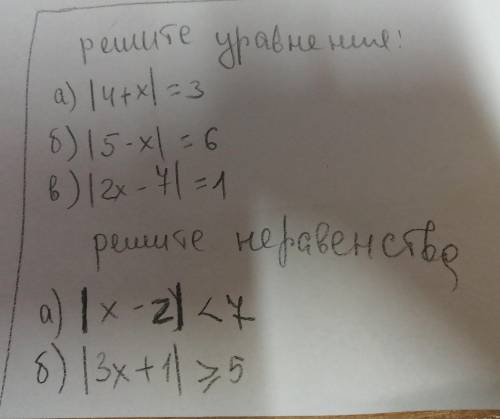 решите уравнения:
а) |4+x| = 3
б) |5-x| = 6
в) |2x-7| = 1
решите неравенства
а) |x-2| < 7
б) |3x+1| ⩾ 5